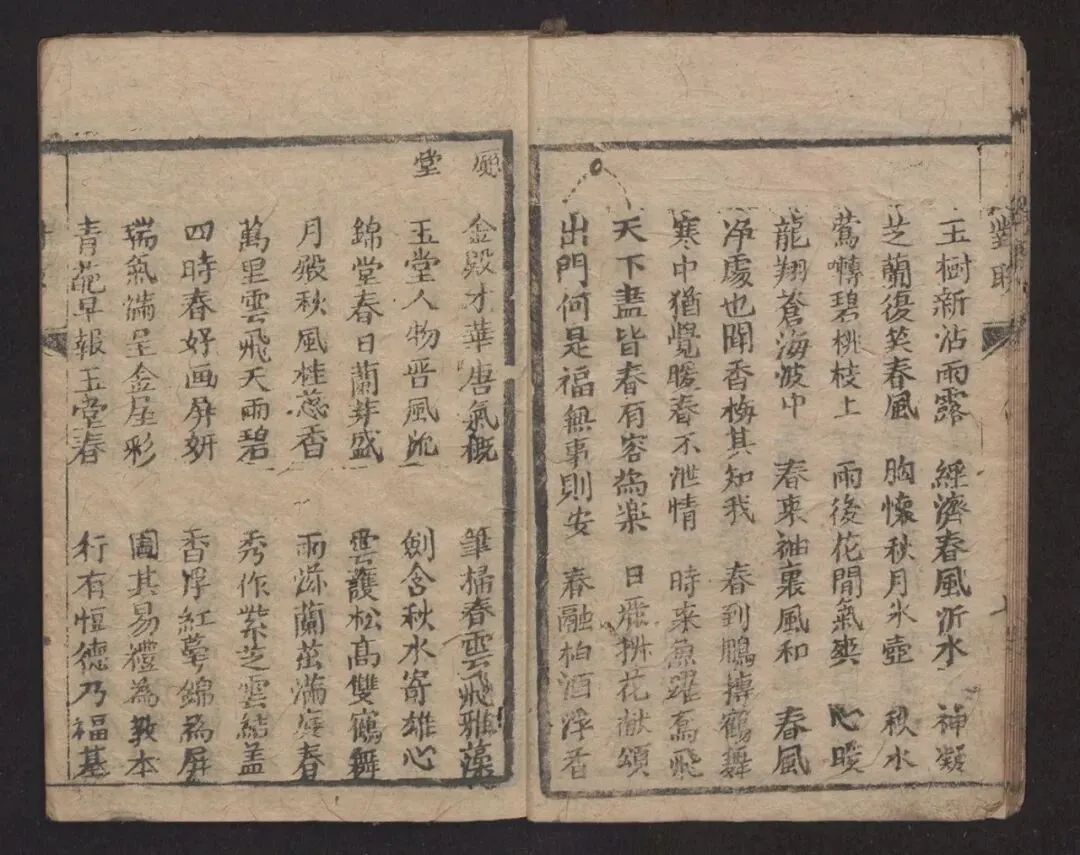 對聯
玉樹新沾雨露 經濟春風沂水 神凝
芝蘭復笑春風 胸懷秋月氷壺 秋水
鶯囀碧桃枝上 雨後花間氣爽 心暖
龍翔蒼海波中 春來袖裏風和 春風
净處也聞香梅其知我 春到鵬摶鶴舞
寒中猶覺暖春不泄情 時来魚躍鳶飛
天下盡皆春有容為楽 日 花献頌
出門何是福無事則安 春融柏酒浮香
金殿才華唐氣概 筆掃春雲飛雅藻
堂 玉堂人物晋風 劍含秋水寄雄心
錦堂春日蘭芽盛 雲護松髙雙鶴舞
月殿秋風桂蕊香 雨 蘭茁滿庭春
萬里雲飛天雨碧 秀作紫芝雲結盖
四時春好画屏妍 香浮紅萼錦為屏
瑞氣滿呈金屋彩 圖其易禮為教本
青 早報玉堂春 行有恒德乃福基